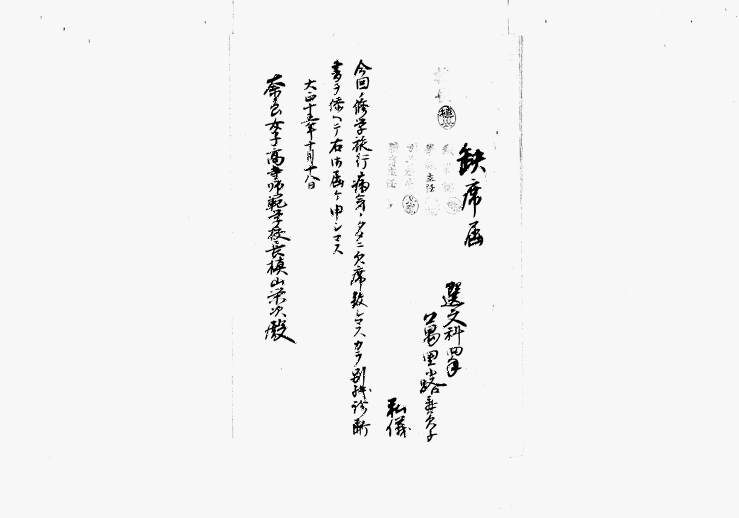 缺席届
選文科四年
萬里小路
私儀
今回ノ修学旅行病気ノタメニ欠席致シマスカラ別紙診断
書ヲ添ヘテ右御届ケ申シマス
大正十五年十月十八日
奈良女子高等師範学校長槇山栄次殿